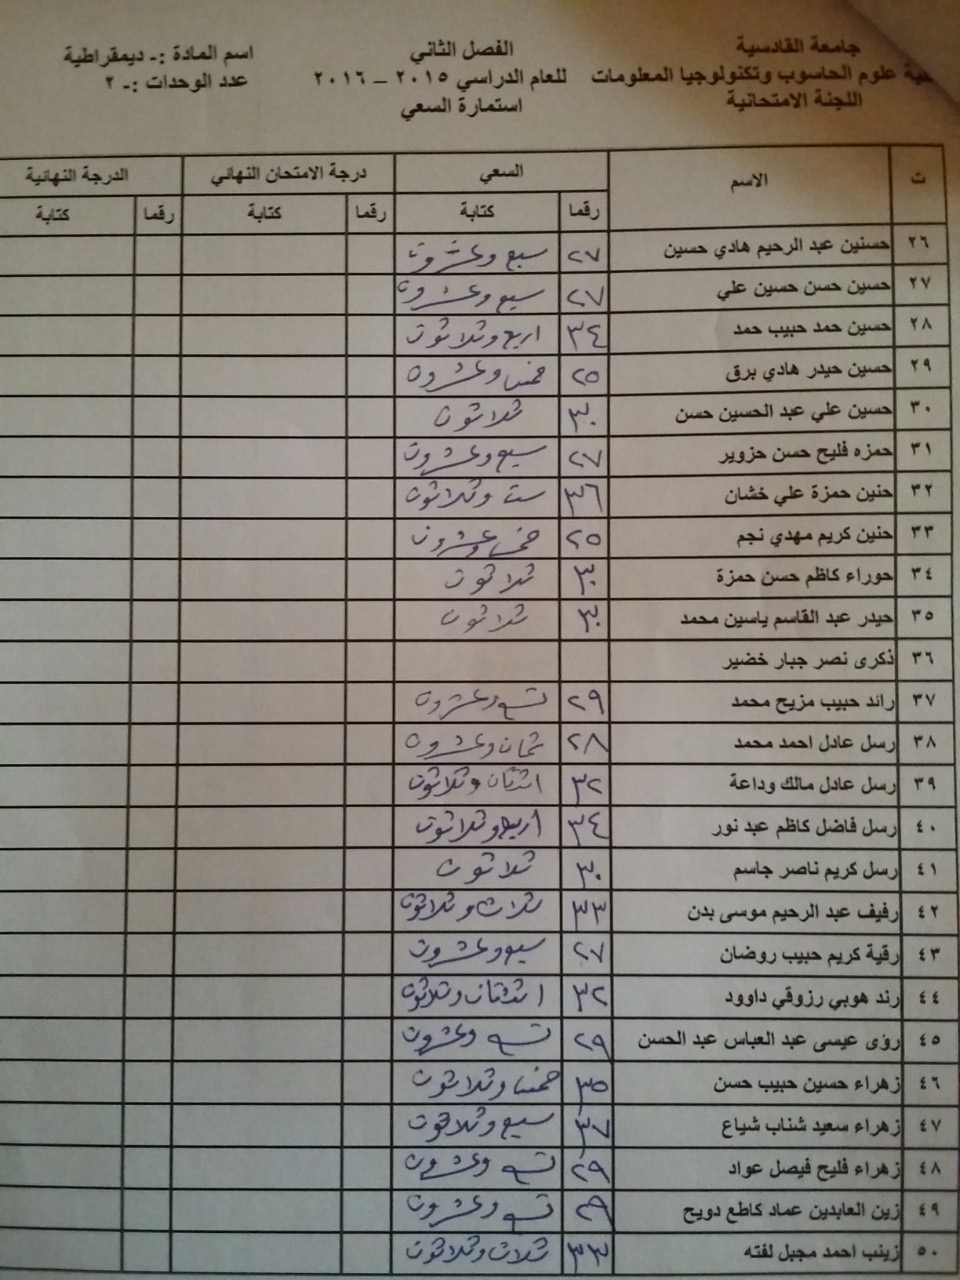 جامعة القادسية
ية علوم الحاسوب وتكنولوجيا المعلومات
اللجنة الامتحانية
الفصل الثاني
للعام الدراسي ٢٠١٥ – ٢٠١٦
استمارة السعي
اسم المادة :- ديمقراطية
عدد الوحدات :- ٢
ت الاسم السعي درجة الامتحان النهائي الدرجة النهائية
رقما كتابة رقما كتابة رقما كتابة
٢٦ حسنين عبد الرحيم هادي حسين ٢٧ سبع وعشرون
٢٧ حسين حسن حسين علي ٢٧ سبع وعشرون
٢٨ حسين حمد حبيب حمد ٣٤ اربع وثلاثون
٢٩ حسين حيدر هادي برق ٢٥ خمس وعشرون
٣٠ حسين علي عبد الحسين حسن ٣٠ ثلاثون
٣١ حمزه فليح حسن حزوير ٢٧ سبع وعشرون
٣٢ حنين حمزة علي خشان ٣٦ ست وثلاثون
٣٣ حنين كريم مهدي نجم ٢٥ خمس وعشرون
٣٤ حوراء كاظم حسن حمزة ٣٠ ثلاثون
٣٥ حيدر عبد القاسم ياسين محمد ٣٠ ثلاثون
٣٦ ذكرى نصر جبار خضير
٣٧ رائد حبيب مزيح محمد ٢٩ تسع وعشرون
٣٨ رسل عادل احمد محمد ٢٨ ثمان وعشرون
٣٩ رسل عادل مالك وداعة ٣٢ اثنان وثلاثون
٤٠ رسل فاضل كاظم عبد نور ٣٤ اربع وثلاثون
٤١ رسل كريم ناصر جاسم ٣٠ ثلاثون
٤٢ رفيف عبد الرحيم موسى بدن ٣٣ ثلاث وثلاثون
٤٣ رقية كريم حبيب روضان ٢٧ سبع وعشرون
٤٤ رند هوبي رزوقي داوود ٣٢ اثنتان وثلاثون
٤٥ رؤى عيسى عبد العباس عبد الحسن ٢٩ تسع وعشرون
٤٦ زهراء حسين حبيب حسن ٣٥ خمس وثلاثون
٤٧ زهراء سعيد شناب شياع ٣٧ سبع وثلاثون
٤٨ زهراء فليح فيصل عواد ٢٩ تسع وعشرون
٤٩ زين العابدين عماد كاطع دويح ٢٩ تسع وعشرون
٥٠ زينب احمد مجبل لفته ٣٣ ثلاث وثلاثون